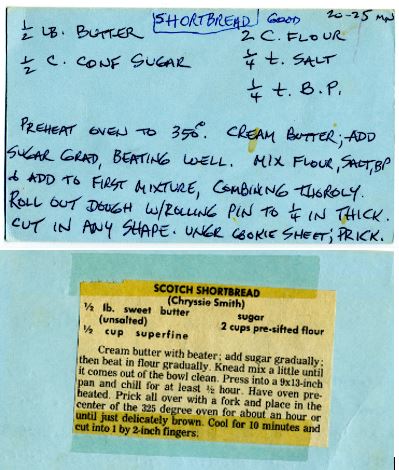 SHORTBREAD GOOD 20-25 MN
½ LB. BUTTER 2 C. FLOUR
½ C. CONF SUGAR ¼ t. SALT
¼ t. B.P.
PREHEAT OVEN TO 350°. CREAM BUTTER, ADD
SUGAR GRAD, BEATING WELL. MIX FLOUR, SALT, BP
& ADD TO FIRST MIXTURE, COMBINING THOROLY.
ROLL OUT DOUGH W/ROLLING PIN TO ¼ IN THICK.
CUT IN ANY SHAPE. UNGR COOKIE SHEET; PRICK.
SCOTCH SHORTBREAD
(Chryssie Smith)
½ lb. sweet butter sugar
(unsalted) 2 cups pre-sifted flour
½ cup superfine
Cream butter with beater; add sugar gradually;
then beat in flour gradually. Knead mix a little until
it comes out of the bowl clean. Press into a 9x13-inch
pan and chill for at least ½ hour. Have oven pre-
heated. Prick all over with a fork and place in the
center of the 325 degree oven for about an hour or
until just delicately brown. Cool for 10 minutes and
cut into 1 by 2-inch fingers.